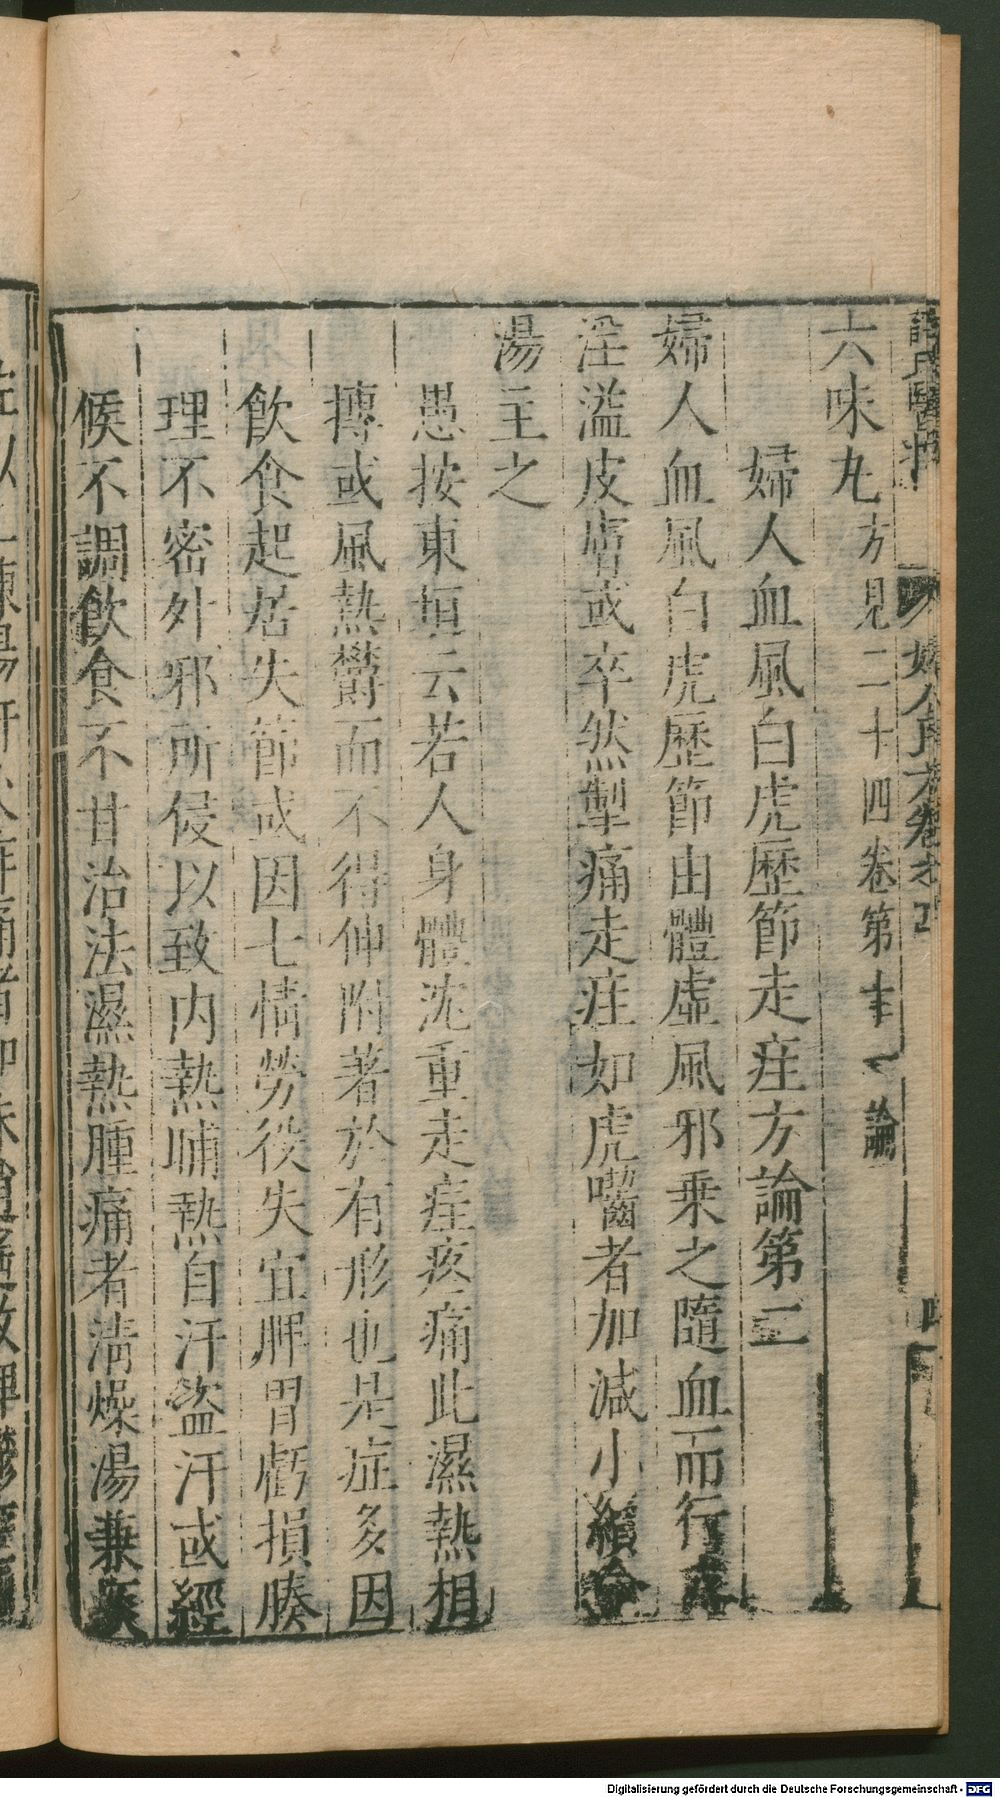 薛氏醫按 婦人良方卷之四
六味丸方見二十四卷第 論
婦人血風白虎歷節走疰方論第二
婦人血風白虎歷節由體虛風邪乘之隨血而行
淫溢皮膚或卒然掣痛走疰如虎嚙者加減小續命
湯主之
愚按東垣云若人身體沈重走疰疼痛此濕熱相
摶或風熱欝而不得伸附著於有形也是症多因
飲食起居失節或因七情勞役失宜脾胃虧損腠
理不密外邪所侵以致内熱晡熱自汗盜汗或經
候不調飲食不甘治法濕熱腫痛者清燥湯兼
Digitalisierung gefördert durch die Deutsche Forschungsgemeinschaft - DFG